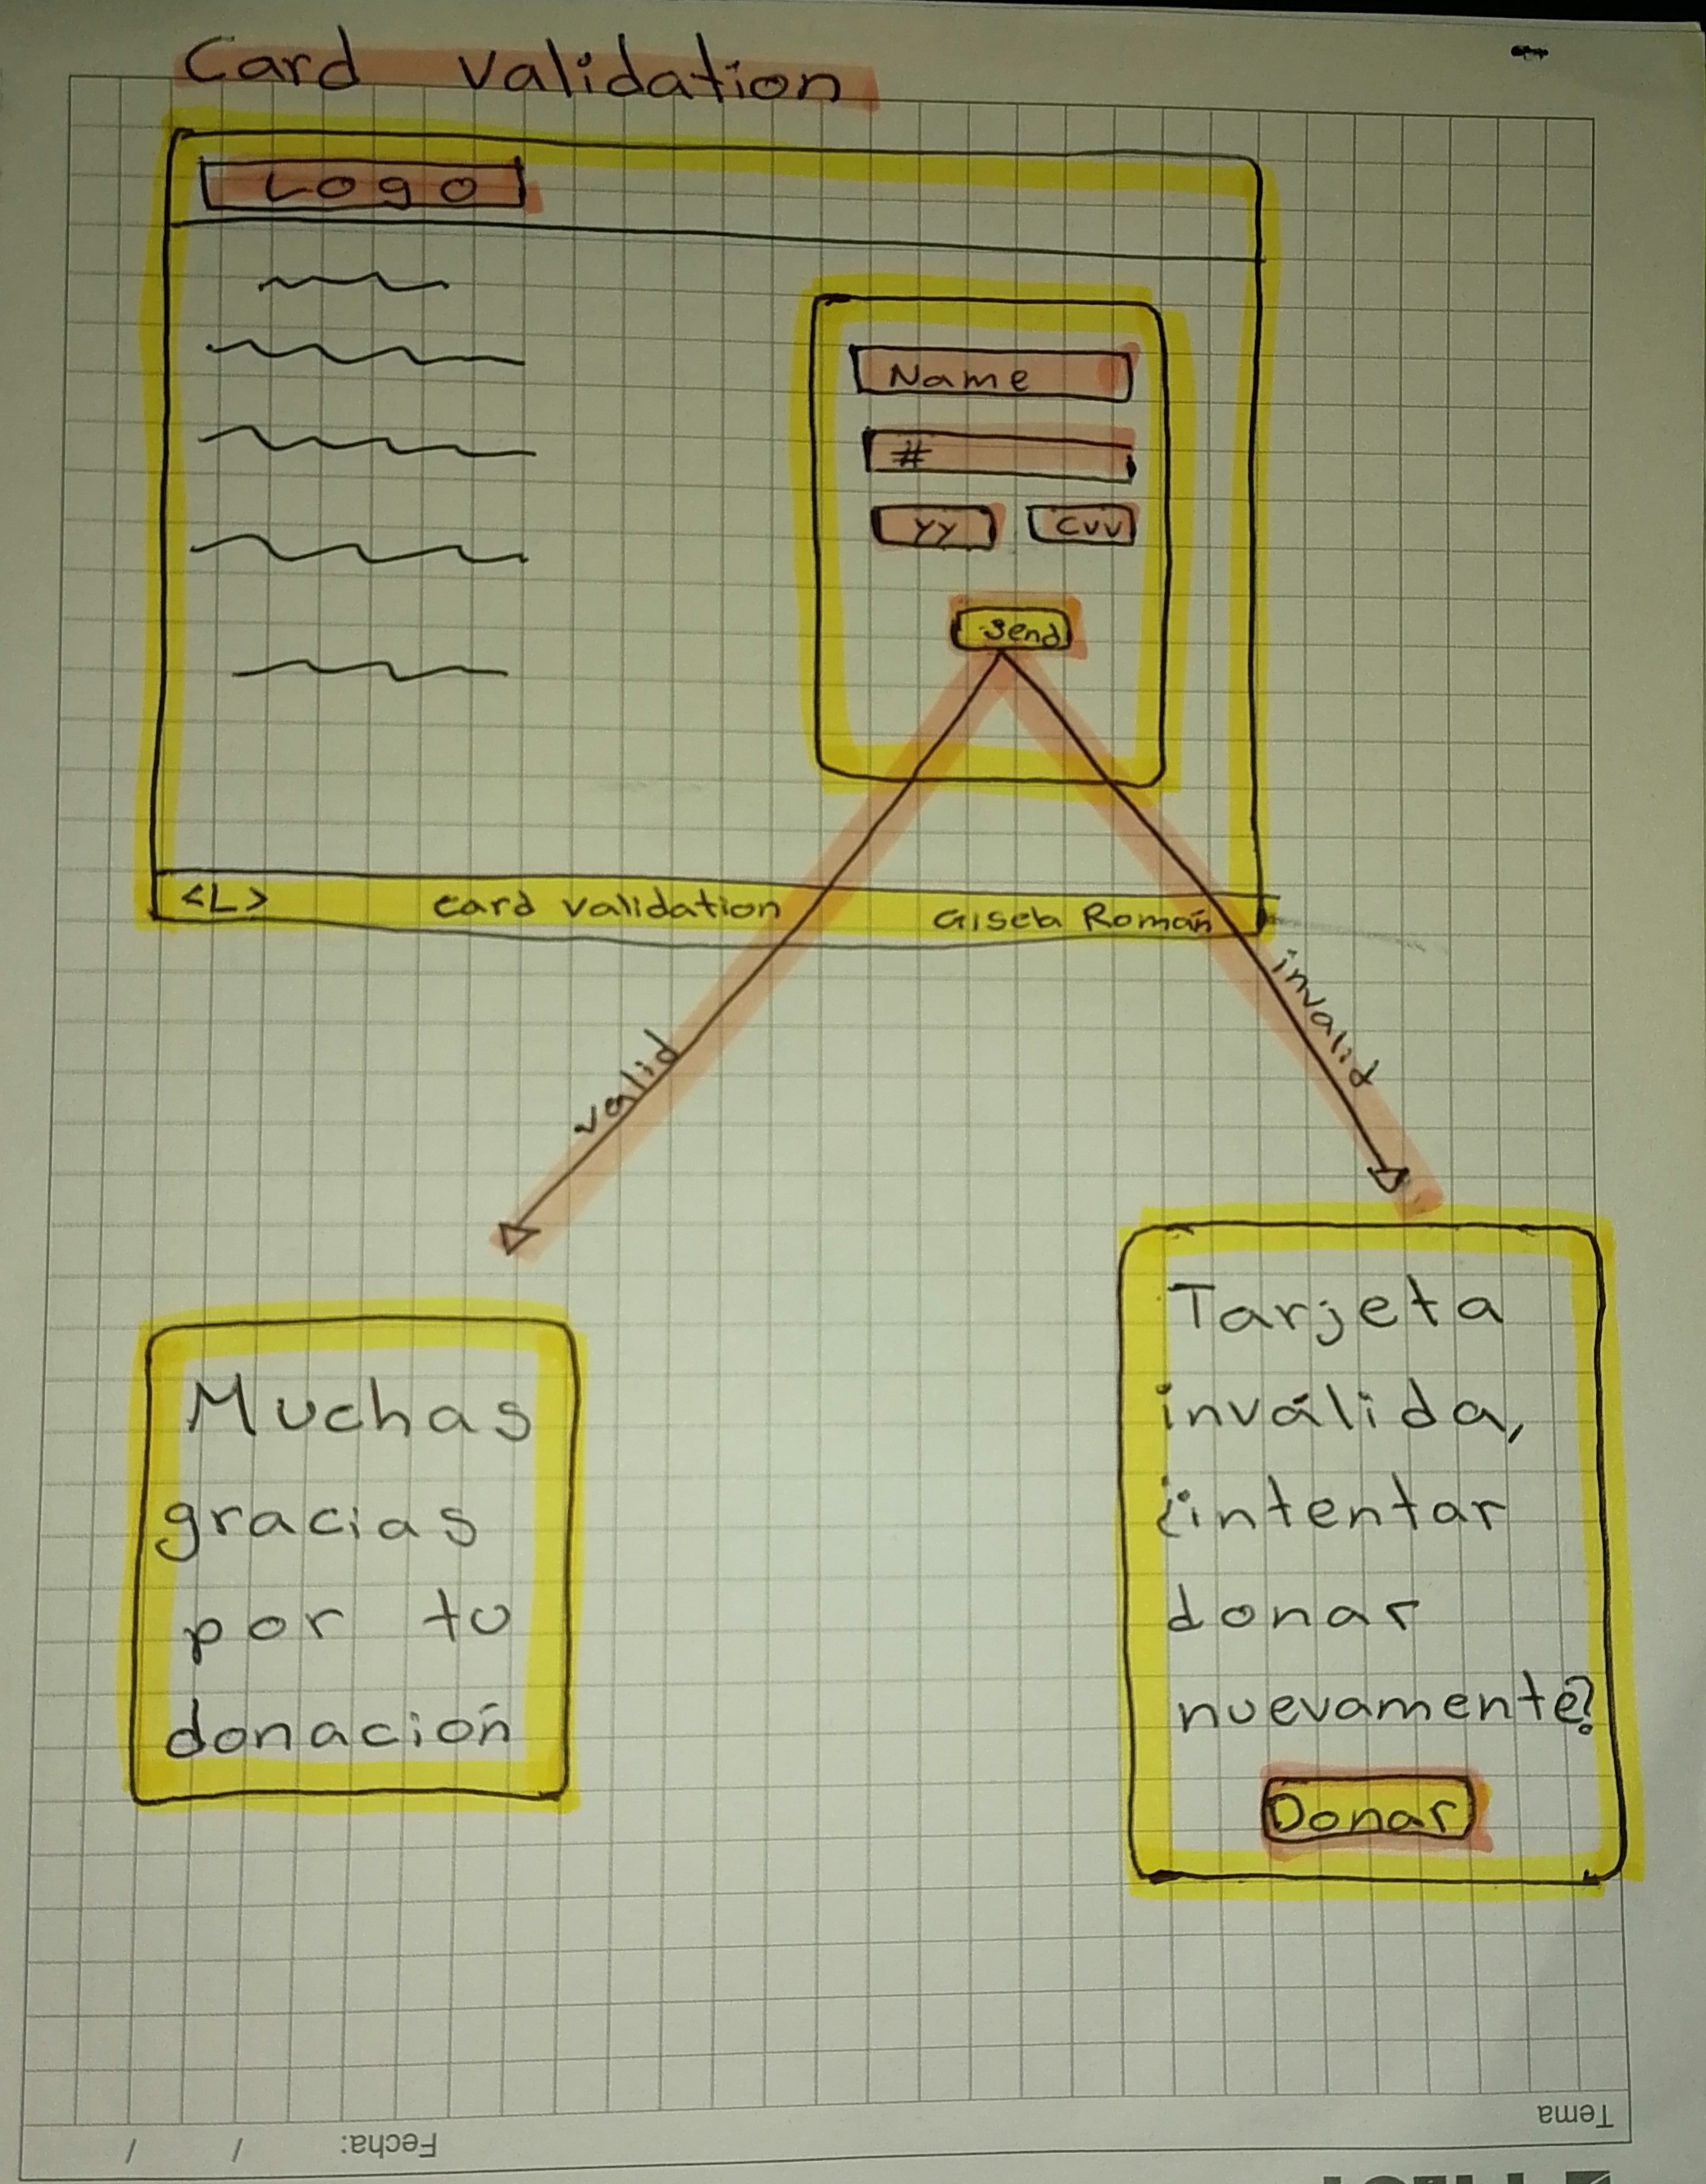 Card validation
Logo
Name
#
YY CVV
Send
<L> card validation Gisela Román
valid
invalid
Muchas
gracias
por tu
donación
Tarjeta
inválida,
¿intentar
donar
nuevamente?
Donar
Tema
Fecha: / /